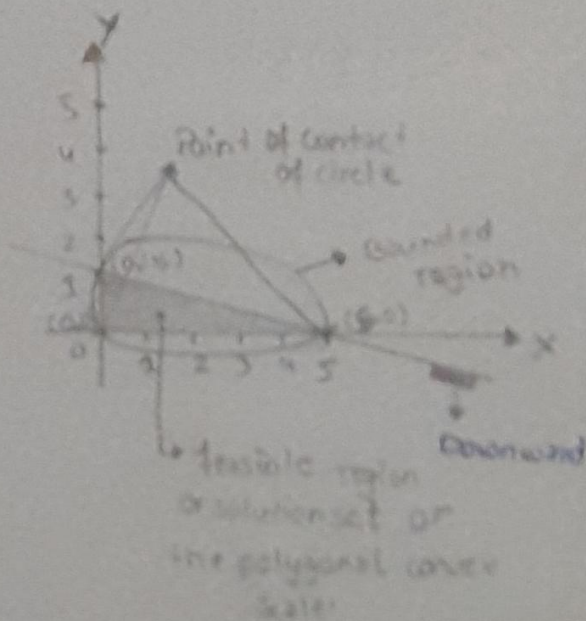 Y
5
4
3
Point of contact
of circle
2
Bounded
region
1
X
0
1 2 3 4 5
Downward
feasible region
or solution set or
the polygonal convex